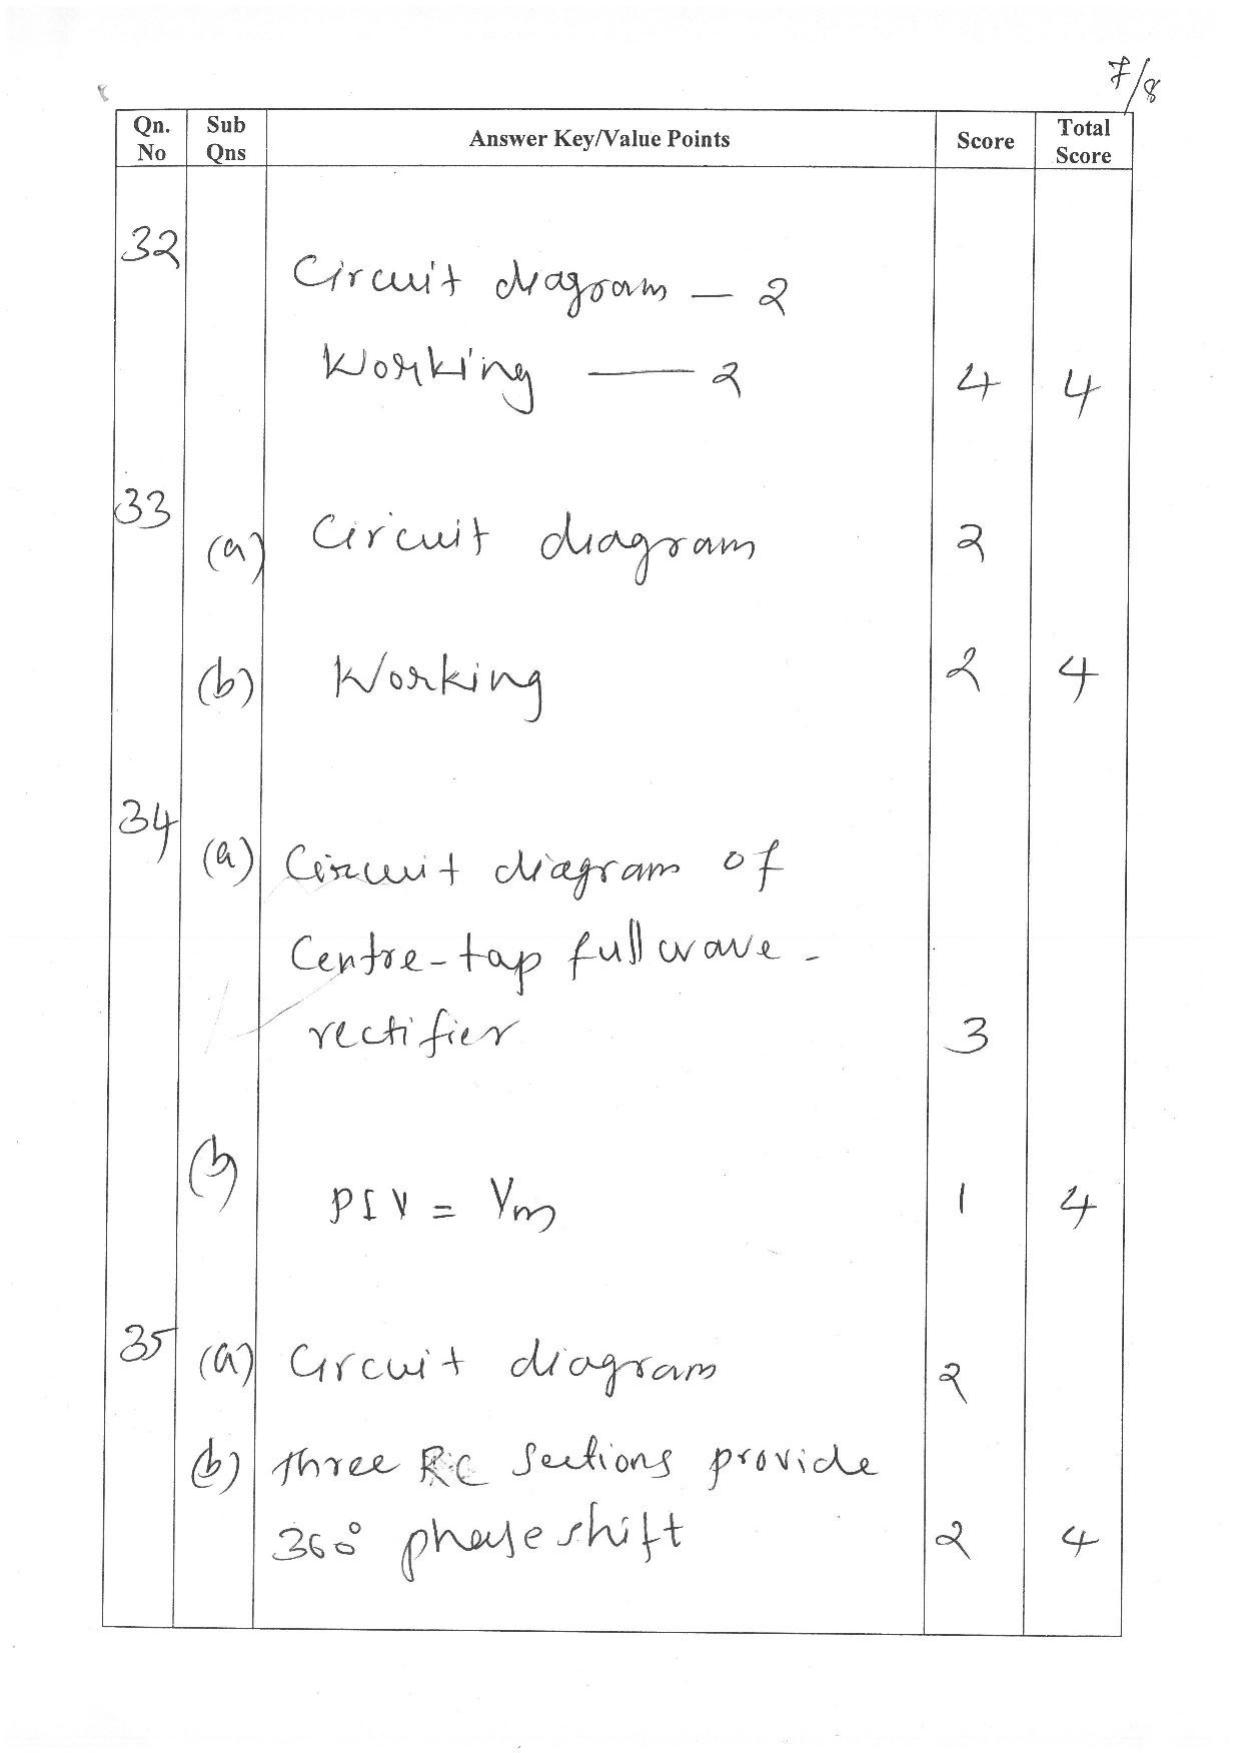 7/8
Qn. No Sub Qns Answer Key/Value Points Score Total Score
32
Circuit diagram — 2
Working — 2 4 4
33 (a) Circuit diagram 2
(b) Working 2 4
34 (a) Circuit diagram of
Centre-tap full wave -
rectifier 3
(b) PIV = Vm 1 4
35 (a) Circuit diagram 2
(b) three RC sections provide
360° phase shift 2 4